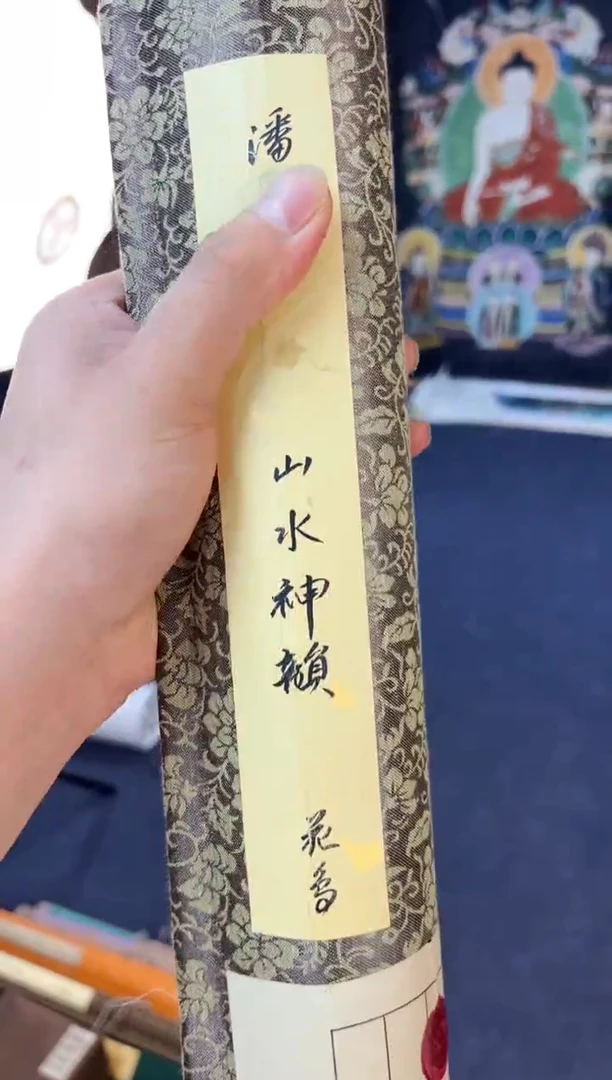 潘
山水神韻